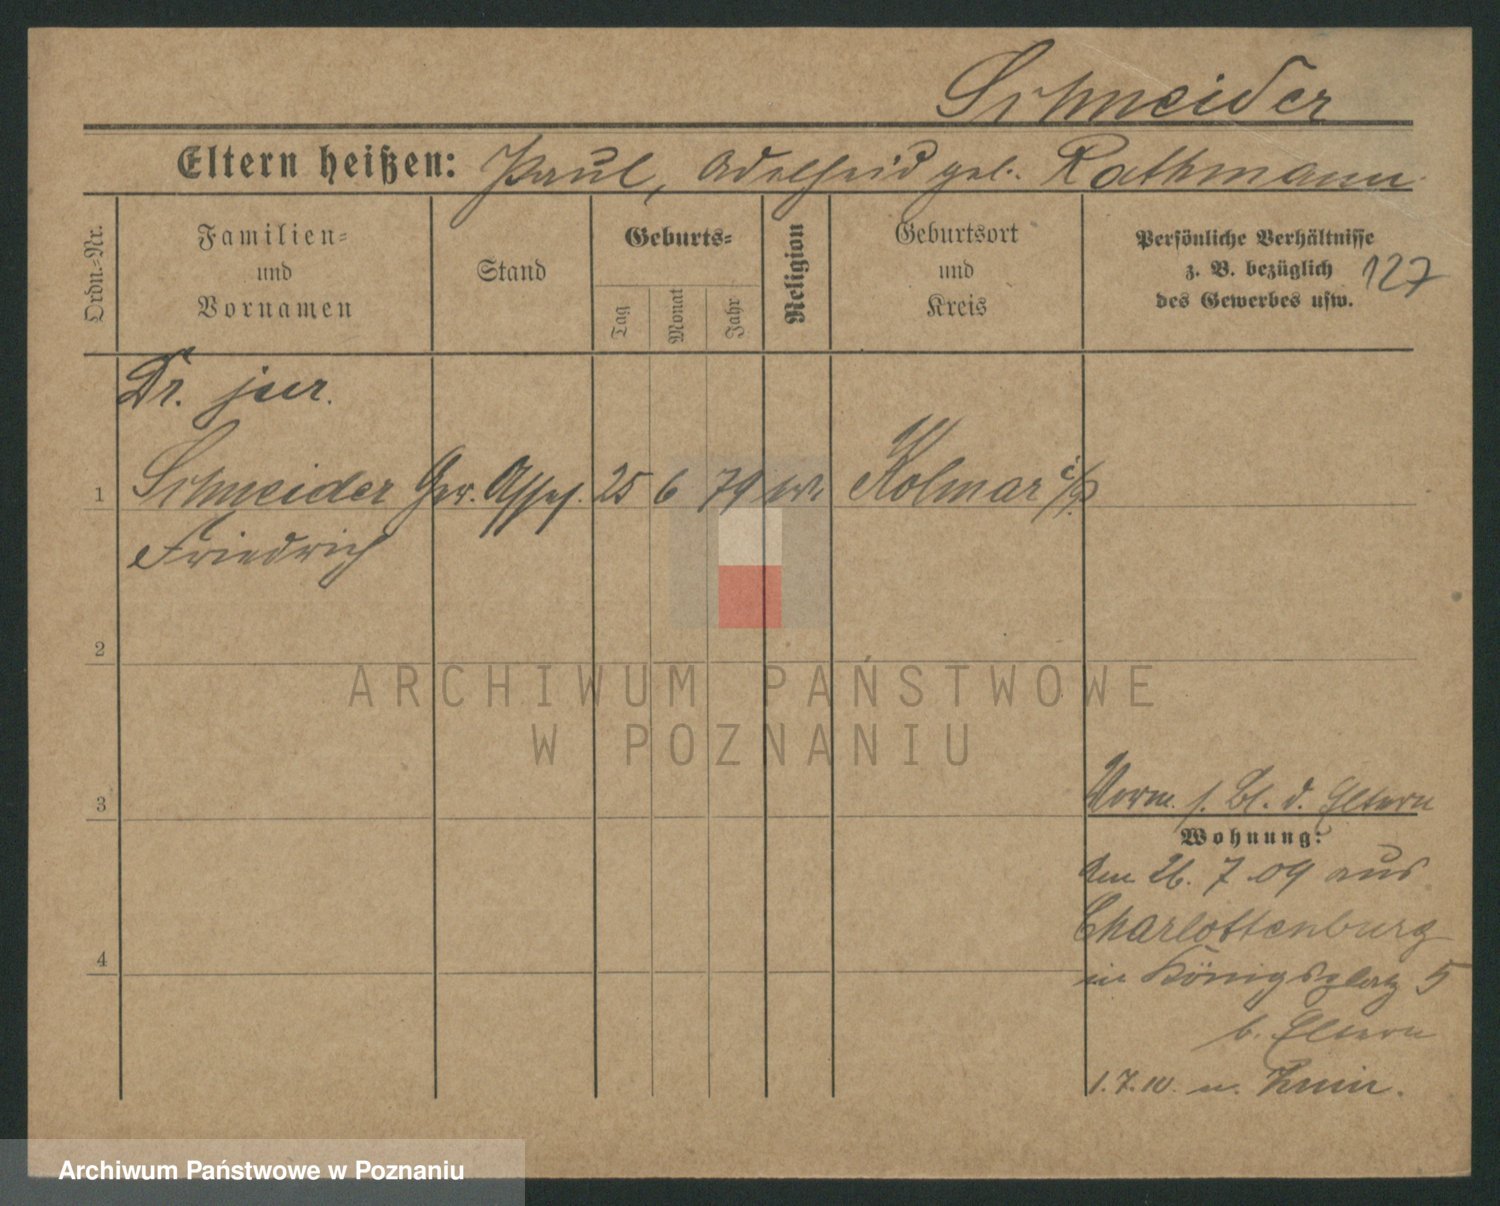 Schneider
Eltern heißen: Paul, Adelheid geb. Rathmann
Ordn.-Nr.
Familien-
und
Vornamen
Stand
Geburts-
Tag
Monat
Jahr
Religion
Geburtsort
und
Kreis
Persönliche Verhältnisse
z. B. bezüglich
des Gewerbes usw.
127
Dr. jur.
1 Schneider Ger. Assess. 25 6 79 ev. Kolmar i/P.
Friedrich
2
ARCHIWUM PAŃSTWOWE
W POZNANIU
3
Vorm. s. Bl. d. Eltern
Wohnung:
Am 26. 7 09 aus
Charlottenburg
4
in Königsplatz 5
b. Eltern
1.7.10. n. Znin.
Archiwum Państwowe w Poznaniu